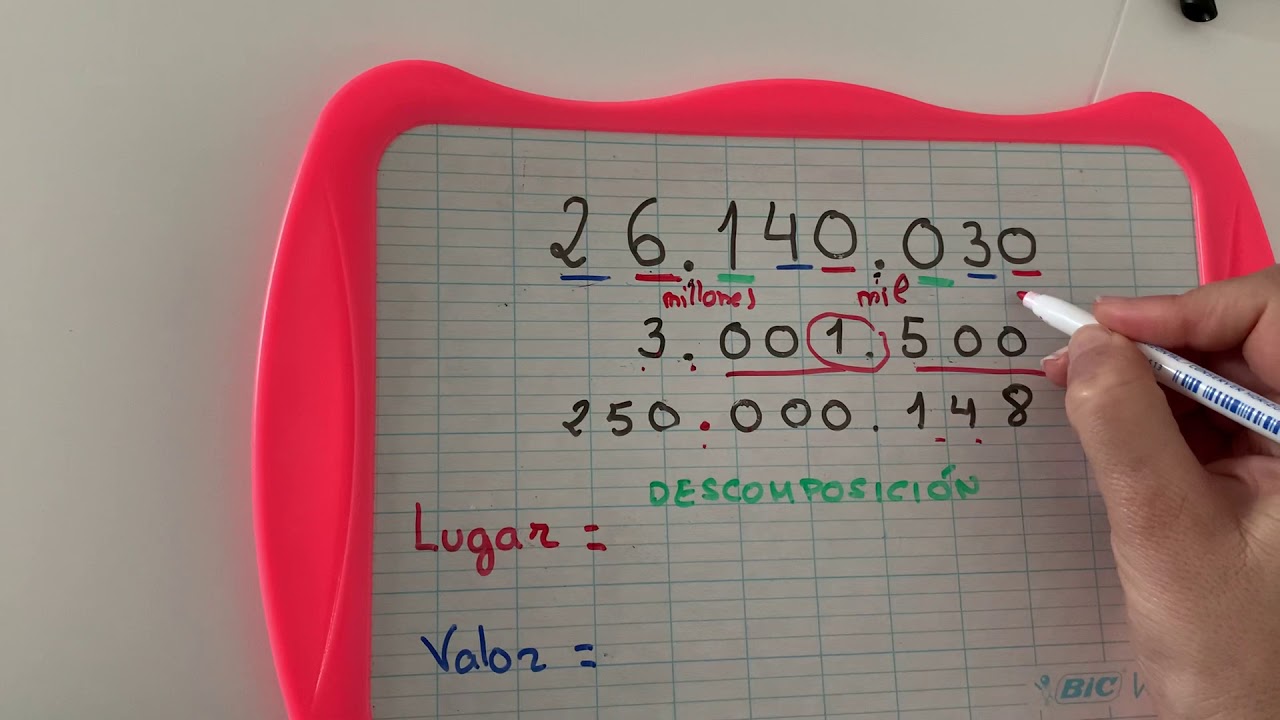 26.140.030
millones mil
3.001.500
250.000.148
DESCOMPOSICIÓN
Lugar =
Valor =
BIC